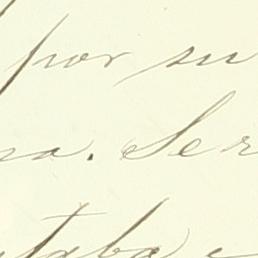 por su
na. Ser
taba